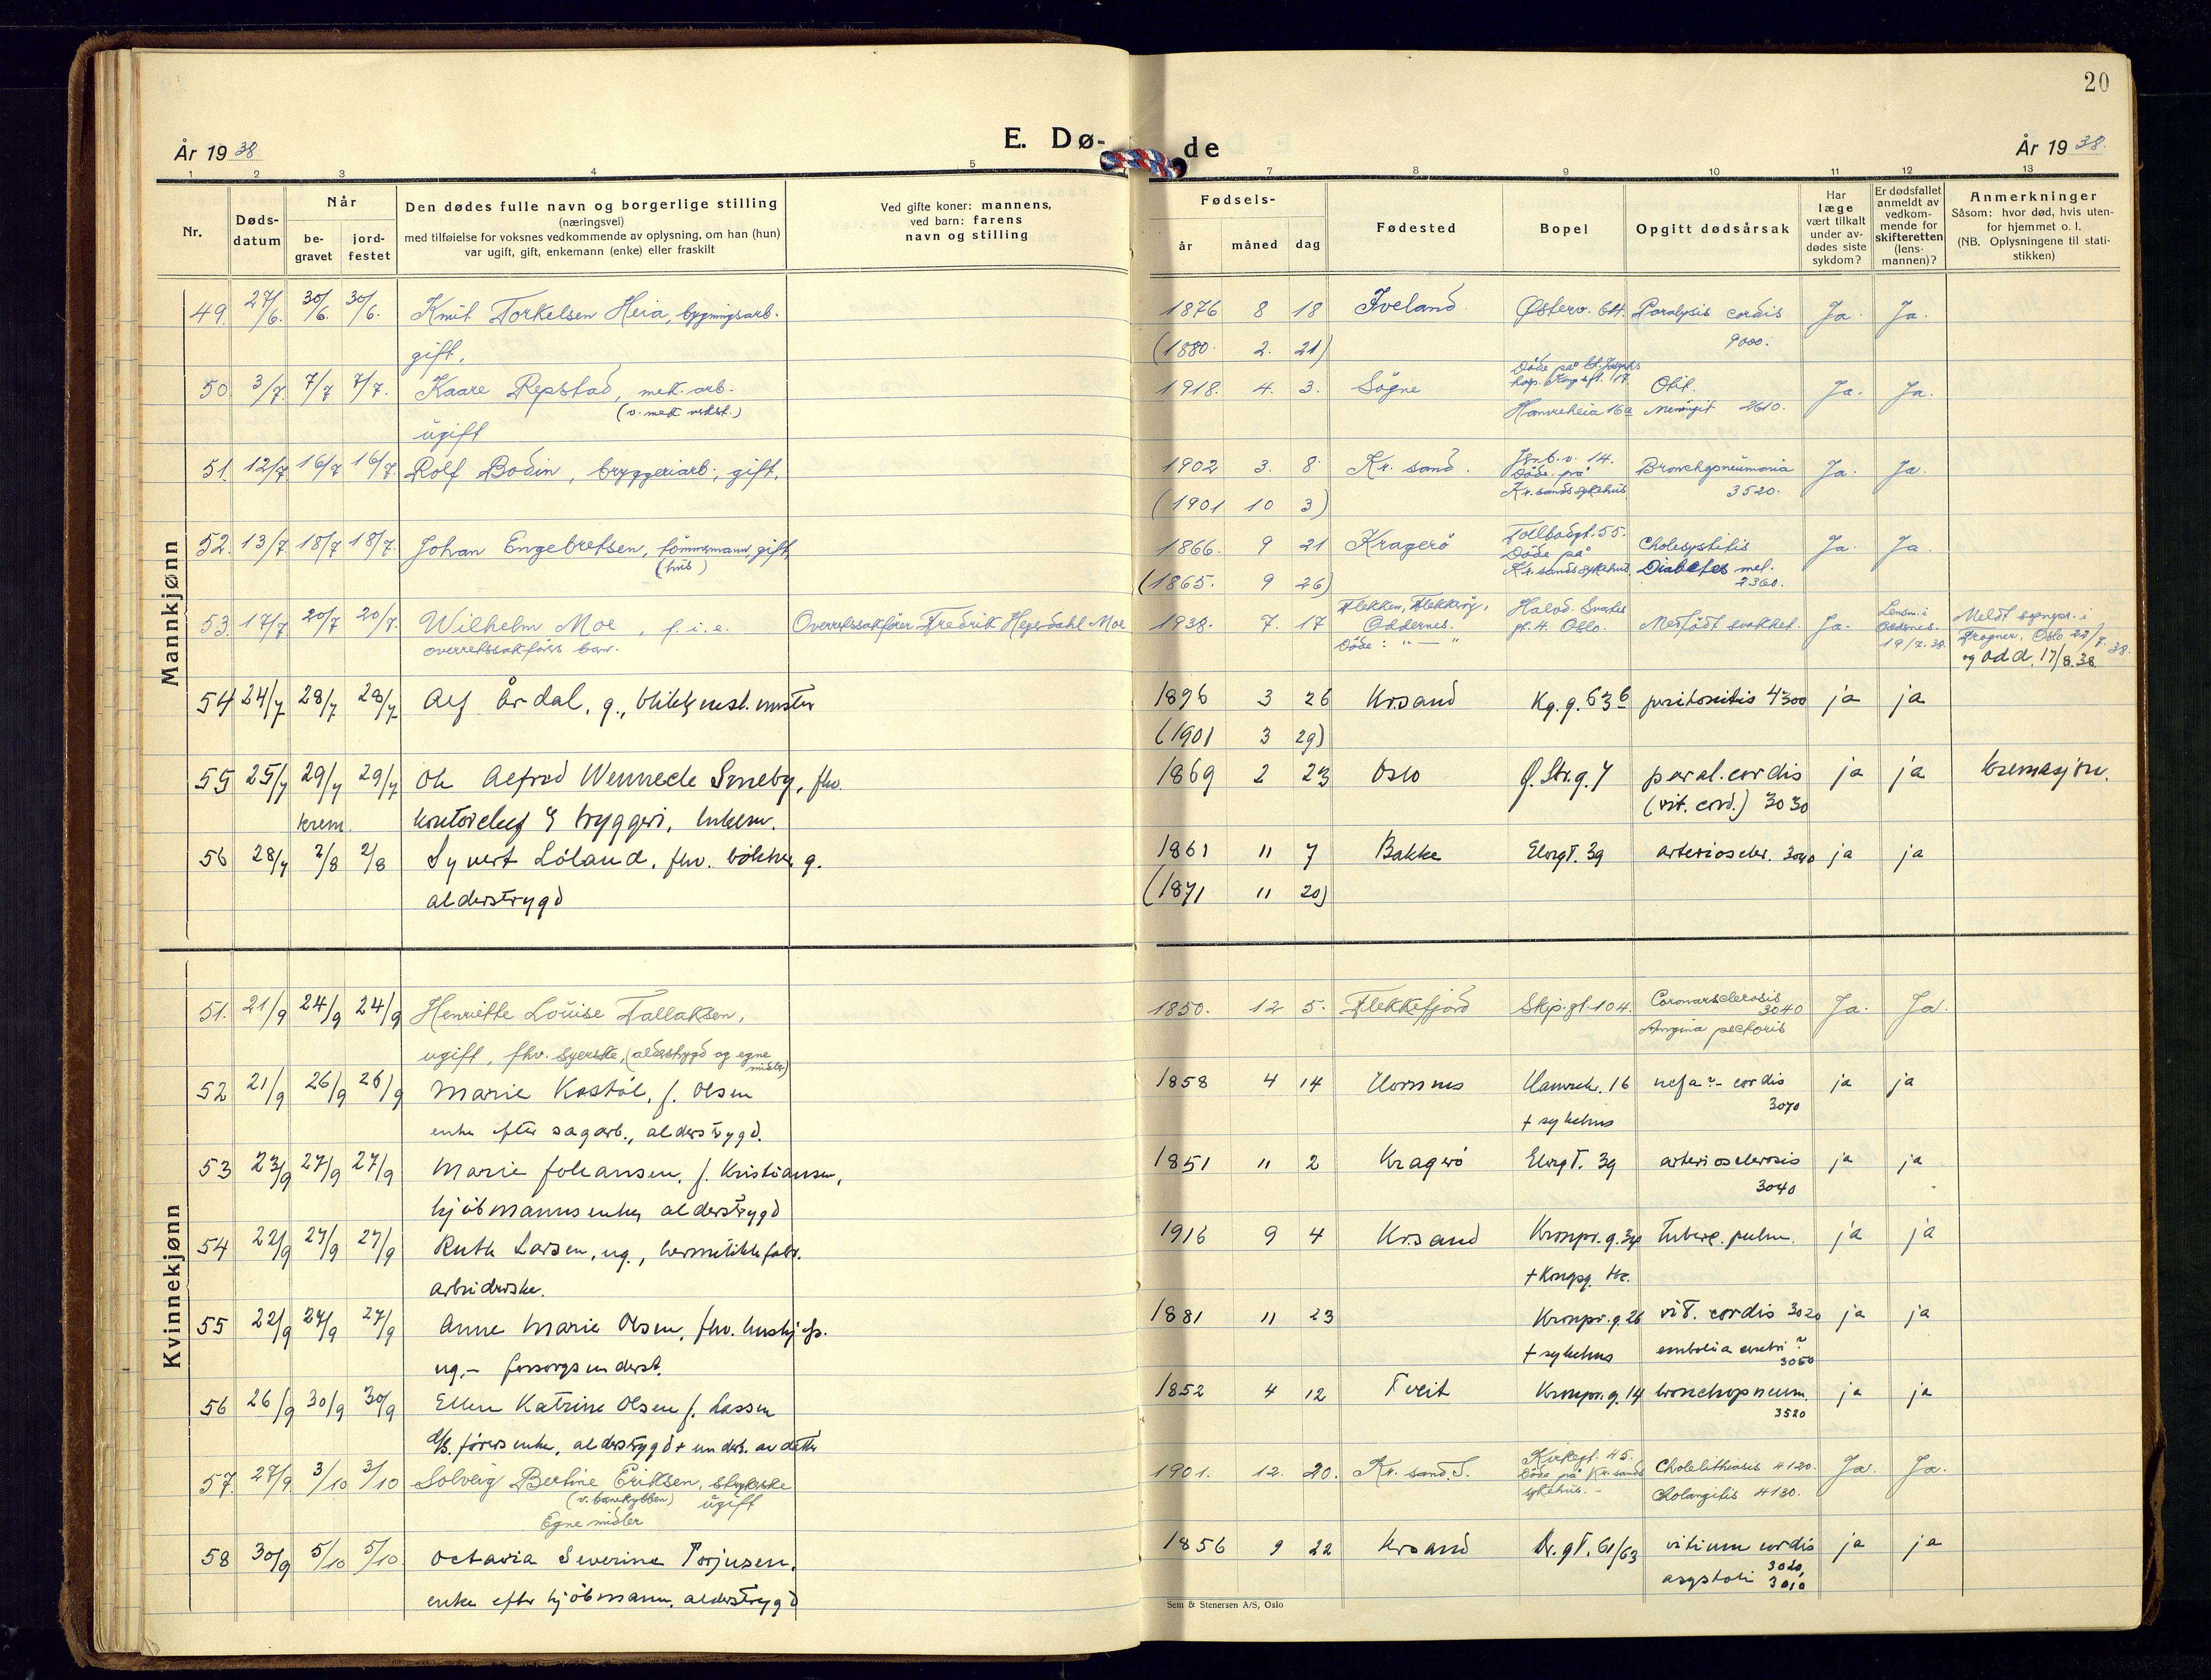 20
År 1938
E. Dø-
de
År 1938.
1 2 3 4 5 7 8 9 10 11 12 13
Nr.
Døds-
datum
Når
be-
gravet
jord-
festet
Den dødes fulle navn og borgerlige stilling
(næringsvei)
med tilføielse for voksnes vedkommende av oplysning, om han (hun)
var ugift, gift, enkemann (enke) eller fraskilt
Ved gifte koner: mannens,
ved barn: farens
navn og stilling
Fødsels-
år måned dag
Fødested
Bopel
Opgitt dødsårsak
Har
læge
vært tilkalt
under av-
dødes siste
sykdom?
Er dødsfallet
anmeldt av
vedkom-
mende for
skifteretten
(lens-
mannen)?
Anmerkninger
Såsom: hvor død, hvis uten-
for hjemmet o. l.
(NB. Oplysningene til stati-
stikken)
Mannkjønn
49. 27/6. 30/6. 30/6. Knut Torkelsen Heia, bygningsarb. 1876 8 18 Iveland Østerv. 64. Paralysis cordis Ja. Ja.
gift. (1880. 2. 21) 9000.
50. 3/7. 7/7 7/7. Kaare Repstad, mek. arb. 1918. 4. 3. Søgne Døde på St. Josephs Obit. Ja. Ja.
(v. mek. verkst.) Hamreheia 16a Meningit 2610.
ugift
51. 12/7 16/7 16/7. Rolf Bodin, bryggeriarb., gift. 1902 3. 8 Kr. sand. Døde på Kr.sands sykehus Bronchopneumonia Ja. Ja.
(1901 10 3) 3520.
52. 13/7. 18/7 18/7. Johan Engebretsen, tømmermann, gift, 1866. 9 21 Kragerø Tollbodgt. 55. Cholesystitis Ja. Ja.
(hus) Døde på Kr.sands sykehus. Diabetes mel.
(1865. 9 26) 2360.
53. 17/7 20/7 20/7. Wilhelm Moe, f. i. e. Overrettssakfører Fredrik Heyerdahl Moe 1938. 7. 17 Flekken, Flekkerøy, Oddernes. Halvd. Svartes gt. 4. Oslo. Medfødt svakhet. Ja. Lensm. i Oddernes. 19/7.38. Meldt sognepr. i
overrettssakførers barn. Døde: " — " Frogner, Oslo 22/7.38.
og Odd. 17/8.38
54 24/7 28/7 28/7 Alf Årdal, g., blikkensl.mester 1896 3 26 Krsand Kg. g. 63b peritonitis 4300 ja ja
(1901 3 29)
55 25/7 29/7 29/7 Ole Alfred Wennede Smeby, fhv. 1869 2 23 Oslo Ø. Str.g. 7 paral. cordis ja ja kremasjon.
krem. kontorchef bryggeri, enkem. (vit. cord.) 3030
56 28/7 2/8 2/8 Syvert Löland, fhv. bökker g. 1861 11 7 Bakke Elvegt. 39 arterioscler. 3040 ja ja
alderstrygd (1871 11 20)
Kvinnekjønn
51. 21/9 24/9 24/9 Henriette Louise Tallaksen, 1850. 12 5. Flekkefjord Skip.gt. 104. Coronarsclerosis 3040 Ja. Ja.
ugift, fhv. syerske, (alderstrygd og egne midler) Angina pectoris
52 21/9 26/9 26/9 Marie Kostöl, f. Olsen 1858 4 14 Hornnes Hamreh. 16 cordis ja ja
enke efter sagarb., alderstrygd. + sykehus 3070
53 23/9 27/9 27/9 Marie Johansen, f. Kristiansen, 1851 11 2 Kragerö Elvegt. 39 arteriosclerosis ja ja
kjöbmannsenke, alderstrygd 3040
54 22/9 27/9 27/9 Ruth Larsen, ug., hermetikkfabr. 1916 9 4 Krsand Kronpr. g. 34 Tuberc. pulm. ja ja
arbeiderske. + Kongsg.
55 22/9 27/9 27/9 Anne Marie Olsen, fhv. hushj. 1881 11 23 Kronpr. g. 26 vit. cordis 3020 ja ja
ug. – forsorgsunderst. + sykehus embolia cerebri? 3060
56 26/9 30/9 30/9 Ellen Katrine Olsen f. Lassen 1852 4 12 Tveit Kronpr. g. 14 bronchopneum. ja ja
d/s. förers enke, alderstrygd + underh. av datter 3520
57. 27/9 3/10 3/10 Solveig Bertine Eriksen, strykerske 1901. 12. 20. Kr. sand. S. Kirkegt. 45. Cholelithiasis 4120. Ja. Ja.
ugift Døde på Kr. sands sykehus. – Cholangitis 4130.
Egne midler
58 30/9 5/10 5/10 Octavia Severine Torjusen. 1856 9 22 Krsand Dr. gt. 61/63 vitium cordis ja ja
enke efter kjöbmann, alderstrygd asystoli 3020, 3010
Sem & Stenersen A/S, Oslo